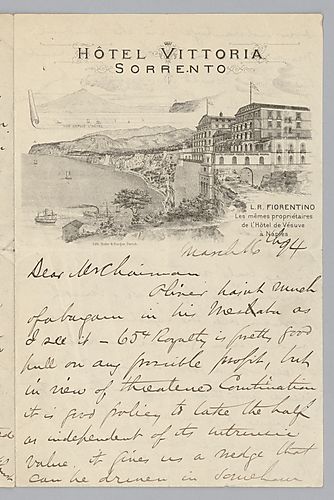 HÔTEL VITTORIA
SORRENTO
L. R. FIORENTINO
Les mêmes propriétaires
de l'Hôtel de Vésuve
à Naples
March 16th 94
Dear Mr Chairman
Oliver hasnt much
of a bargain in his Mesabi as
I see it – 65¢ Royalty is pretty good
pull on any possible profit, but
in view of threatened Combination
it is good policy to take the half
as independent of its intrinsic
value, it gives us a wedge that
can be driven in somehow